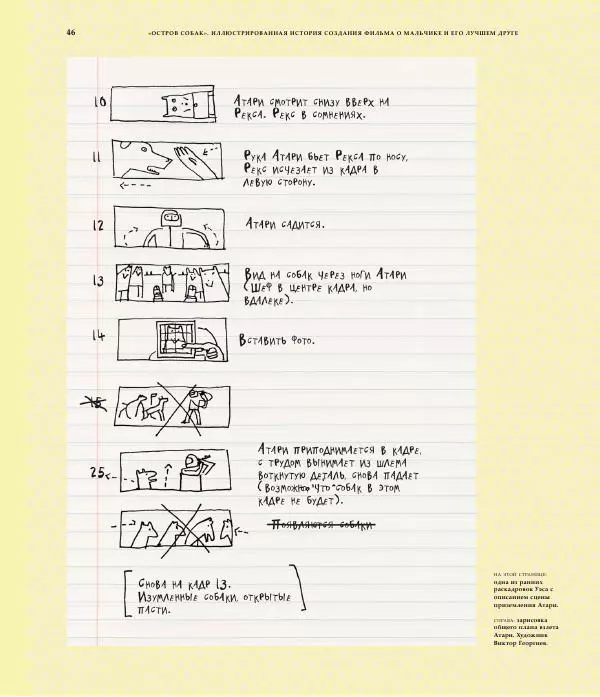 46
«ОСТРОВ СОБАК». ИЛЛЮСТРИРОВАННАЯ ИСТОРИЯ СОЗДАНИЯ ФИЛЬМА О МАЛЬЧИКЕ И ЕГО ЛУЧШЕМ ДРУГЕ
10
АТАРИ СМОТРИТ СНИЗУ ВВЕРХ НА
РЕКСА. РЕКС В СОМНЕНИЯХ.
11
РУКА АТАРИ БЬЕТ РЕКСА ПО НОСУ,
РЕКС ИСЧЕЗАЕТ ИЗ КАДРА В
ЛЕВУЮ СТОРОНУ.
12
АТАРИ САДИТСЯ.
13
ВИД НА СОБАК ЧЕРЕЗ НОГИ АТАРИ
(ШЕФ В ЦЕНТРЕ КАДРА, НО
ВДАЛЕКЕ).
14
ВСТАВИТЬ ФОТО.
15
25
АТАРИ ПРИПОДНИМАЕТСЯ В КАДРЕ,
С ТРУДОМ ВЫНИМАЕТ ИЗ ШЛЕМА
ВОТКНУТУЮ ДЕТАЛЬ, СНОВА ПАДАЕТ
(ВОЗМОЖНО ЧТО СОБАК В ЭТОМ
КАДРЕ НЕ БУДЕТ).
ПОЯВЛЯЮТСЯ СОБАКИ
СНОВА НА КАДР 13.
ИЗУМЛЕННЫЕ СОБАКИ, ОТКРЫТЫЕ
ПАСТИ.
НА ЭТОЙ СТРАНИЦЕ:
одна из ранних
раскадровок Уэса с
описанием сцены
приземления Атари.
СПРАВА: зарисовка
общего плана взлета
Атари. Художник
Виктор Георгиев.